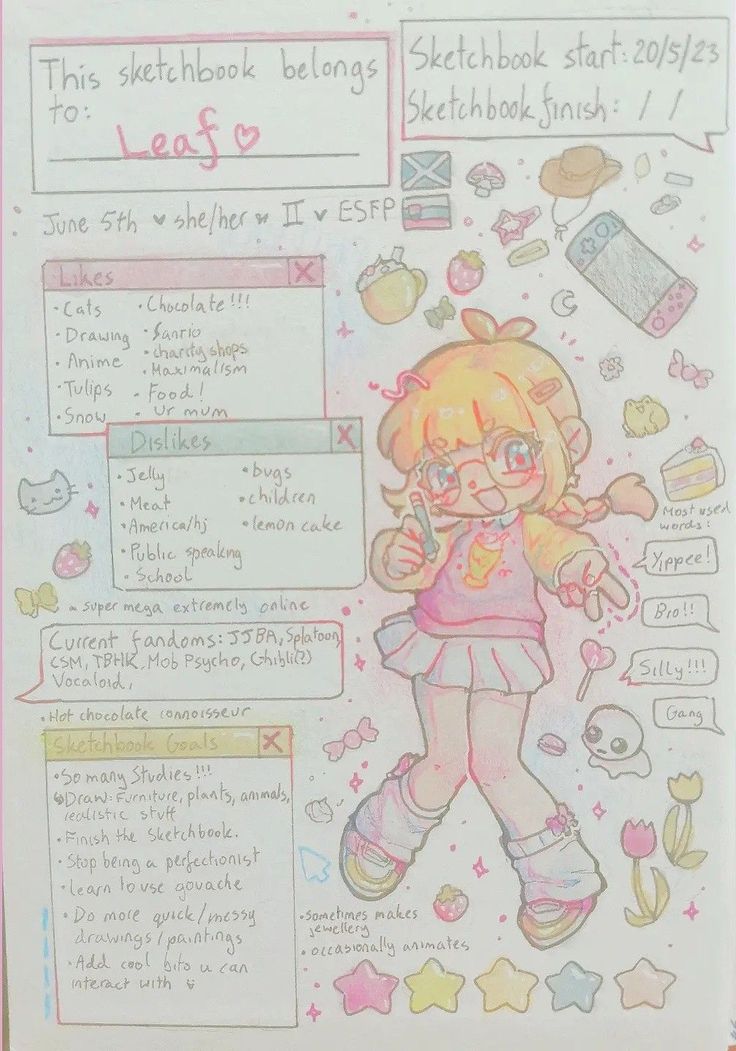 This sketchbook belongs
to:
Leaf ♡
Sketchbook start: 20/5/23
Sketchbook finish: / /
June 5th ♥ she/her ♥ II ♥ ESFP
Likes
• Cats
• Drawing
• Anime
• Tulips
• Snow
• Chocolate!!!
• Sanrio
• charity shops
• Maximalism
• Food!
• Ur mum
Dislikes
• Jelly
• Meat
• America/hj
• Public speaking
• School
• bugs
• children
• lemon cake
super mega extremely online
Current fandoms: JJBA, Splatoon,
CSM, TBHK, Mob Psycho, Ghibli(?)
Vocaloid,
• Hot chocolate connoisseur
Sketchbook Goals
• So many Studies!!!
Draw: Furniture, plants, animals,
realistic stuff
• Finish the Sketchbook.
• Stop being a perfectionist
• Learn to use gouache
• Do more quick/messy
drawings/paintings
• Add cool bits u can
interact with
Most used
words:
Yippee!
Bro!!
Silly!!!
Gang
• sometimes makes
jewellery
• occasionally animates